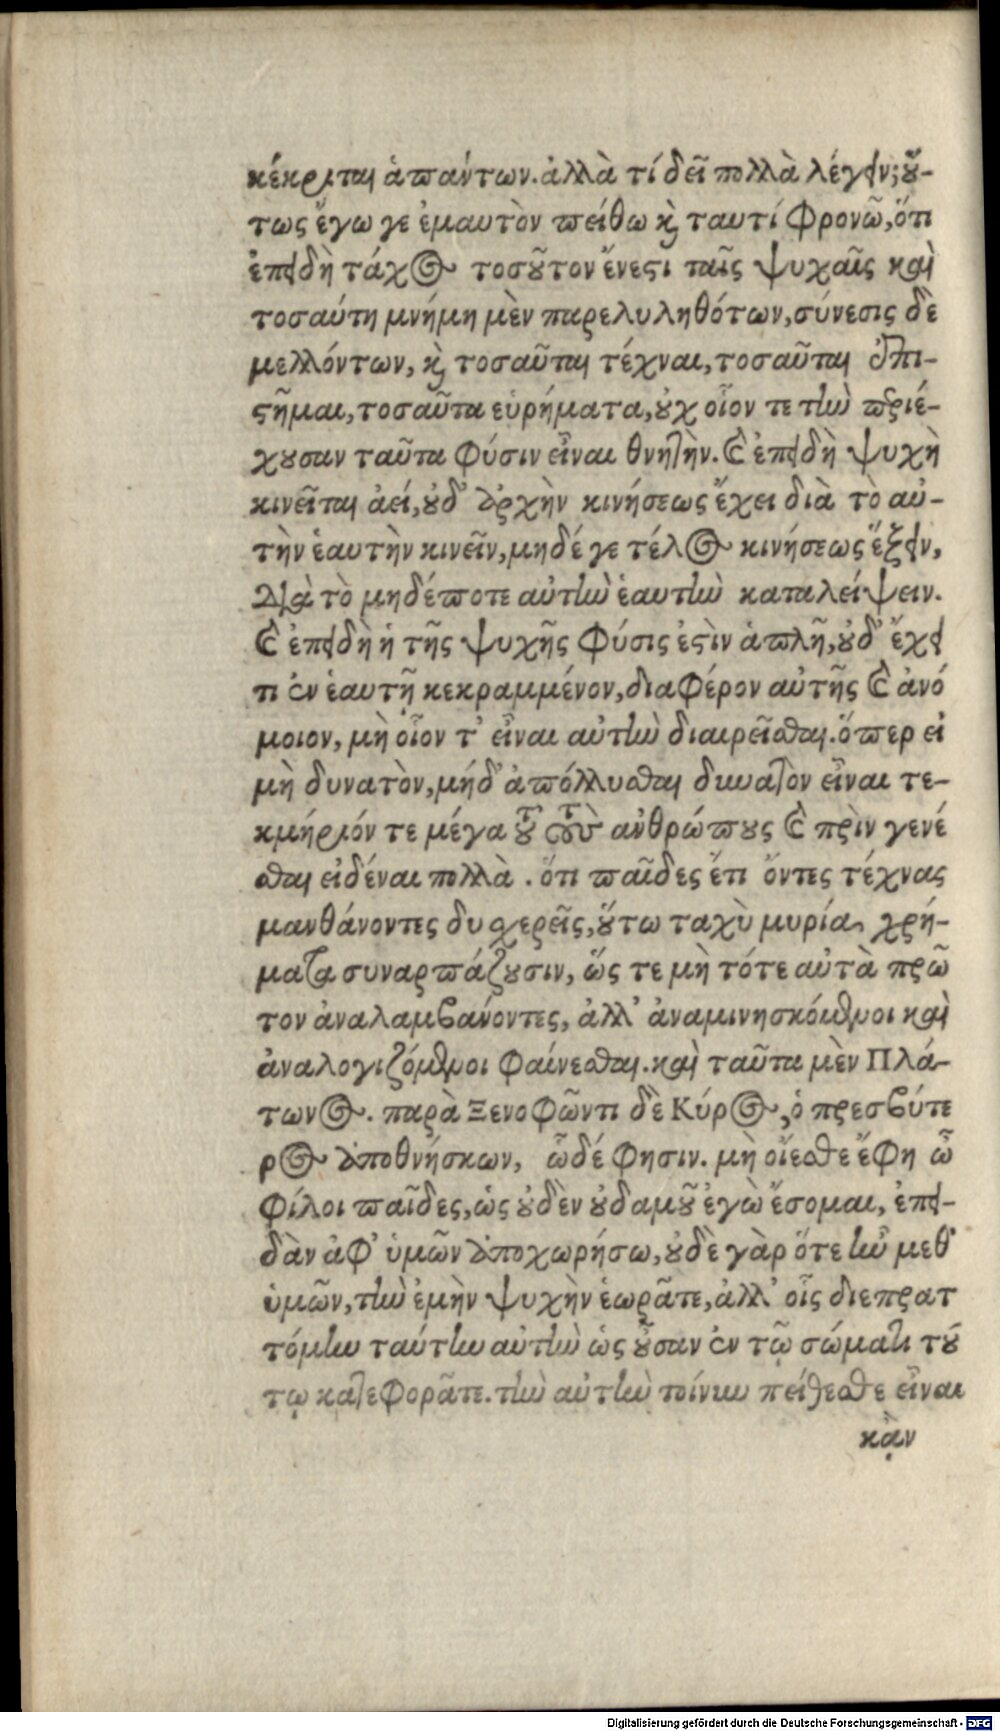 κέκριται ἁπάντων. ἀλλὰ τί δεῖ πολλὰ λέγειν; οὕ-
τως ἔγω γε ἐμαυτὸν πείθω καὶ ταυτί φρονῶ, ὅτι
ἐπειδὴ τάχος τοσοῦτον ἔνεστι ταῖς ψυχαῖς καὶ
τοσαύτη μνήμη μὲν παρελυληθότων, σύνεσις δὲ
μελλόντων, καὶ τοσαῦται τέχναι, τοσαῦται ἐπι-
στῆμαι, τοσαῦτα εὑρήματα, οὐχ οἷον τε τὴν περιέ-
χουσαν ταῦτα φύσιν εἶναι θνητὴν. καὶ ἐπειδὴ ψυχὴ
κινεῖται ἀεί, οὐδ' ἀρχὴν κινήσεως ἔχει διὰ τὸ αὐ-
τὴν ἑαυτὴν κινεῖν, μηδέ γε τέλος κινήσεως ἕξειν,
διὰ τὸ μηδέποτε αὐτὴν ἑαυτὴν καταλείψειν.
καὶ ἐπειδὴ ἡ τῆς ψυχῆς φύσις ἐστὶν ἁπλῆ, οὐδ' ἔχει
τι ἐν ἑαυτῇ κεκραμμένον, διαφέρον αὐτῆς καὶ ἀνό
μοιον, μὴ οἷον τ' εἶναι αὐτὴν διαιρεῖσθαι. ὅπερ εἰ
μὴ δυνατὸν, μήδ' ἀπόλλυσθαι δυνατὸν εἶναι τε-
κμήριόν τε μέγα τοῦ τοὺς ἀνθρώπους καὶ πρὶν γενέ
σθαι εἰδέναι πολλὰ. ὅτι παῖδες ἔτι ὄντες τέχνας
μανθάνοντες δυσχερεῖς, οὕτω ταχὺ μυρία χρή-
ματα συναρπάζουσιν, ὥς τε μὴ τότε αὐτὰ πρῶ
τον ἀναλαμβανόντες, ἀλλ' ἀναμινησκόμενοι καὶ
ἀναλογιζόμενοι φαίνεσθαι. καὶ ταῦτα μὲν Πλά-
τωνος. παρὰ Ξενοφῶντι δὲ Κύρος, ὁ πρεσβύτε
ρος ἀποθνήσκων, ὧδέ φησιν. μὴ οἴεσθε ἔφη ὦ
φίλοι παῖδες, ὡς οὐδὲν οὐδαμοῦ ἐγὼ ἔσομαι, ἐπει-
δὰν ἀφ' ὑμῶν ἀποχωρήσω, οὐδὲ γὰρ ὅτε ἦν μεθ'
ὑμῶν, τὴν ἐμὴν ψυχὴν ἑωρᾶτε, ἀλλ' οἷς διεπρατ
τόμην ταύτην αὐτὴν ὡς οὖσαν ἐν τῷ σώματι τού
τῳ κατεφορᾶτε. τὴν αὐτὴν τοίνυν πείθεσθε εἶναι
κἂν